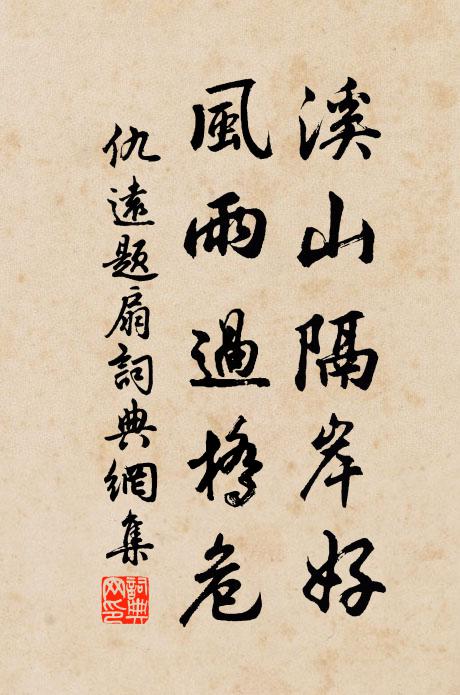 溪山隔岸好
風雨過橋危
仇遠題扇詞典網集
詞典网印